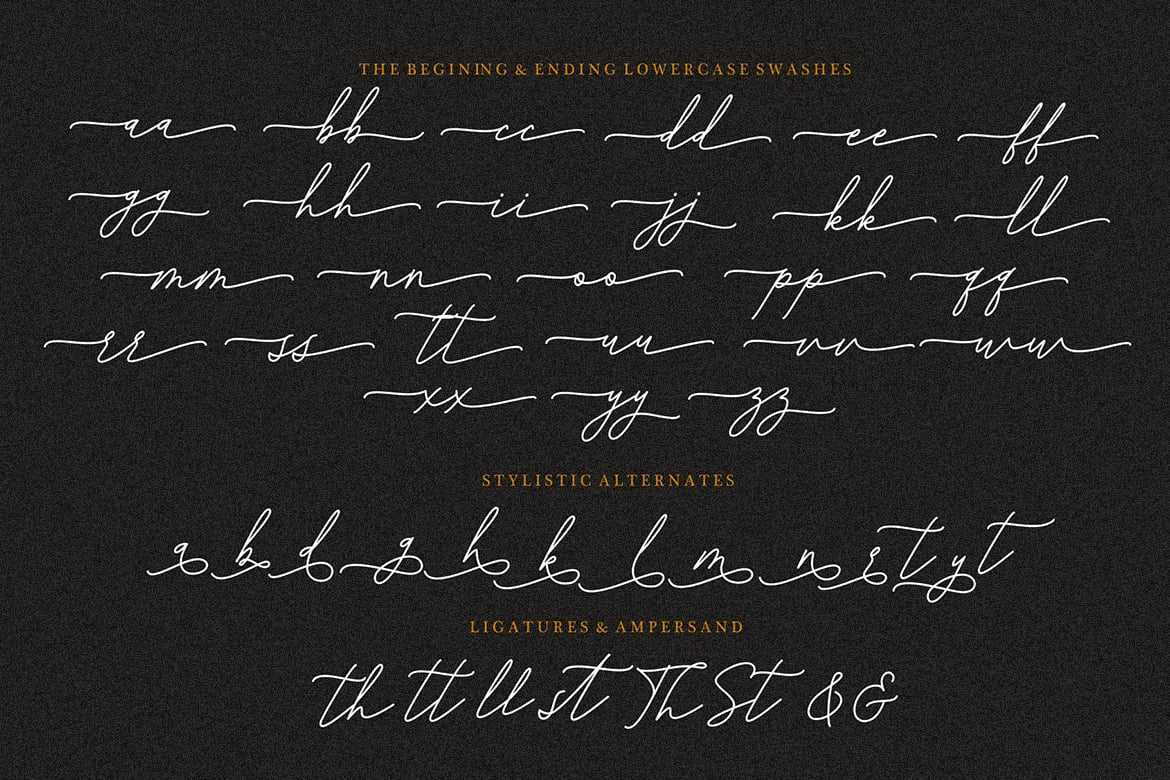 THE BEGINING & ENDING LOWERCASE SWASHES
aa bb cc dd ee ff
gg hh ii jj kk ll
mm nn oo pp qq
rr ss tt uu vv ww
xx yy zz
STYLISTIC ALTERNATES
a b d g h k l m n r t y t
LIGATURES & AMPERSAND
th tt ll st Th St & &